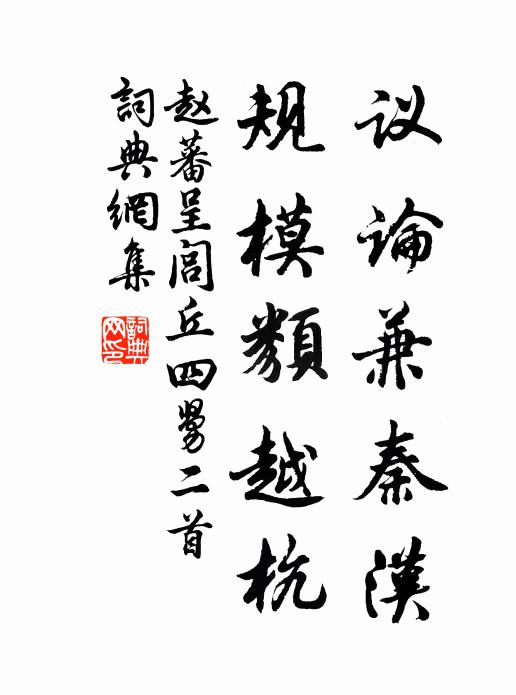 议論兼秦漢
规模類越杭
赵蕃呈闾丘四舅二首
詞典網集
詞典网印